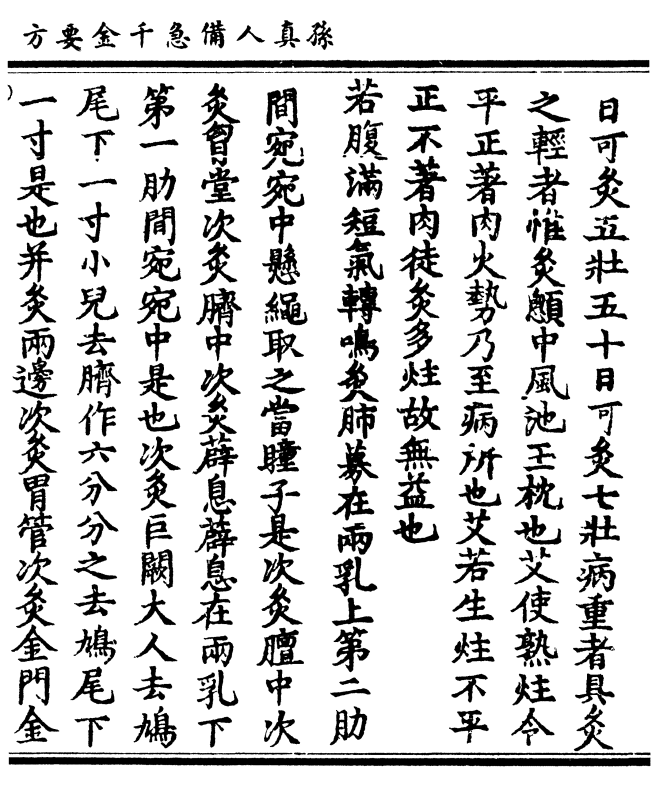 孫真人備急千金要方
日可灸五壯五十日可灸七壯病重者具灸
之輕者惟灸顖中風池玉枕也艾使熟炷令
平正著肉火勢乃至病所也艾若生炷不平
正不著肉徒灸多炷故無益也
若腹滿短氣轉鳴灸肺募在兩乳上第二肋
間宛宛中懸繩取之當瞳子是次灸膻中次
灸胷堂次灸臍中次灸薜息薜息在兩乳下
第一肋間宛宛中是也次灸巨闕大人去鳩
尾下一寸小兒去臍作六分分之去鳩尾下
一寸是也并灸兩邊次灸胃管次灸金門金